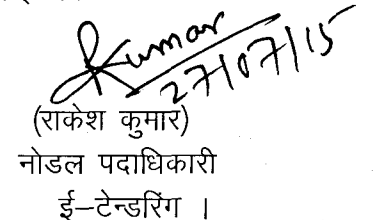 RKumar
27/07/15
(राकेश कुमार)
नोडल पदाधिकारी
ई–टेन्डरिंग ।